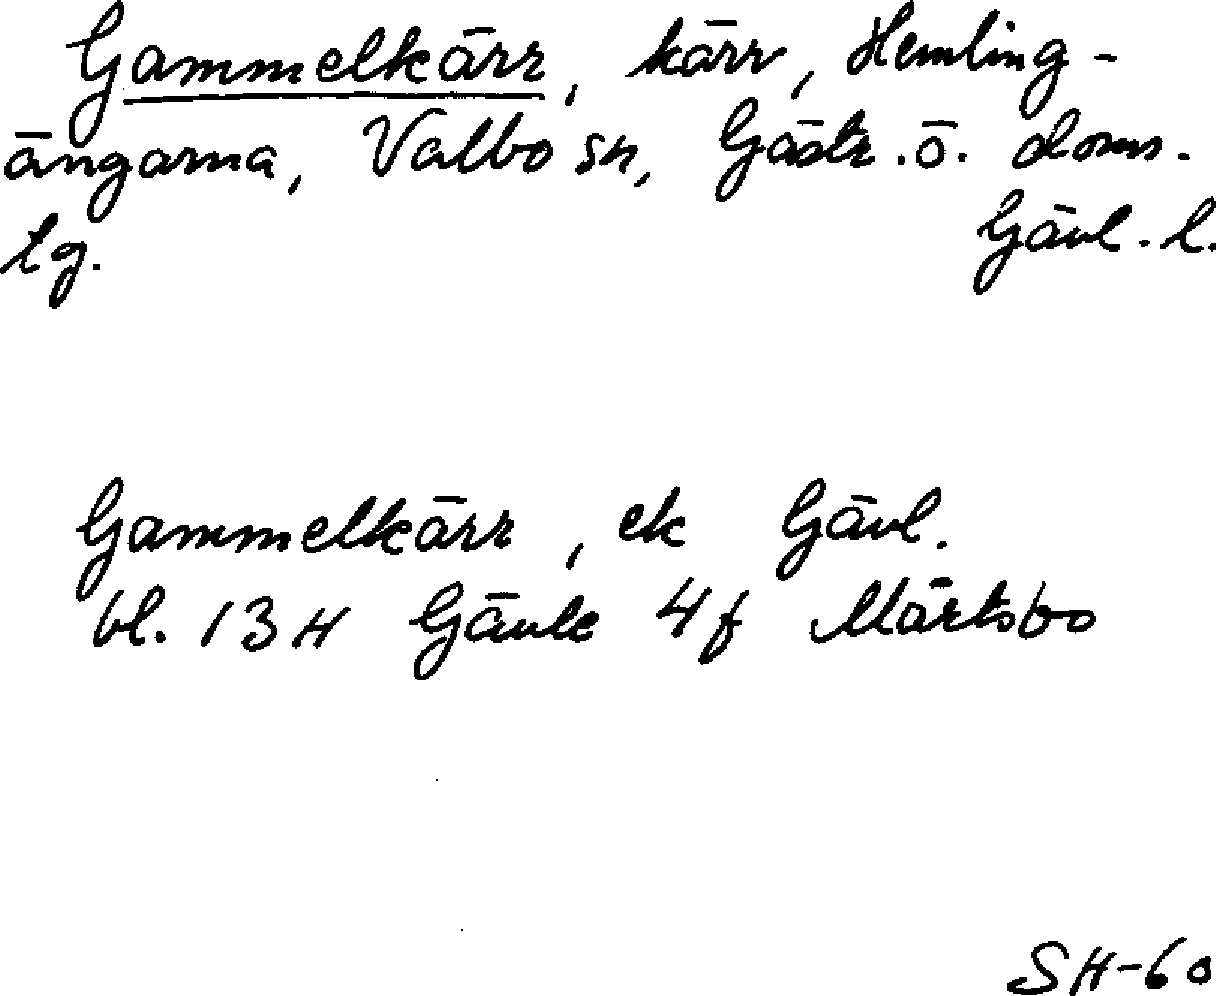 Gammelkärr, kärr, Hemling-
ängarna, Valbo sn, Gästr. ö. doms.
tg. Gävl. l.
Gammelkärr, ek Gävl.
bl. 13H Gävle 4f Mårtsbo
SH-60